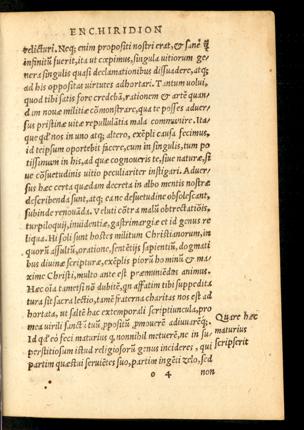 ENCHIRIDION
relicturi. Neq; enim propositi nostri erat, & sane
infinitũ fuerit, ita ut cœpimus, singula uitiorum ge-
nera singulis quasi declamationibus dissuadere, atq;
ad his oppositas uirtutes adhortari. Tantum uolui,
quod tibi satis fore credebã, rationem & artẽ quan-
dam nouæ militiæ cõmonstrare, qua te posses aduer-
sus pristinæ uitæ repullulãtia mala communire. Ita-
que qđ nos in uno atq; altero, exẽpli causa fecimus,
id teipsum oportebit facere, cum in singulis, tum po
tissimum in his, ad quæ cognoueris te, siue naturæ, si-
ue cõsuetudinis uitio peculiariter instigari. Aduer-
sus hæc certa quædam decreta in albo mentis nostræ
describenda sunt, atq; ea ne desuetudine obsolescant,
subinde renouãda. Veluti cõtra malũ obtrectatiõis,
turpiloquij, inuidentiæ, gastrimargiæ et id genus re
liqua. Hi soli sunt hostes militum Christianorum, in
quorũ assultũ, oratione, sentẽtijs sapientiũ, dogmati
bus diuinæ scripturæ, exẽplis piorũ hominũ & ma-
xime Christi, multo ante est præmuniẽdus animus.
Hæc oĩa tametsi nõ dubitẽ, qn affatim tibi suppedita
tura sit sacra lectio, tamẽ fraterna charitas nos est ad
hortata, ut saltẽ hac extemporali scriptiuncula, pro
mea uirili sanctũ tuũ, ppositũ, pmouerẽ adiuuarẽq;.
Id qđ eò feci maturius q, nonnihil metuerẽ, ne in su-
perstitiosum istud religiosorũ genus incideres, qui
partim quæstui seruiẽtes suo, partim ingẽti zelo, sed
o 4 non
Quare hæc
maturius
scripserit